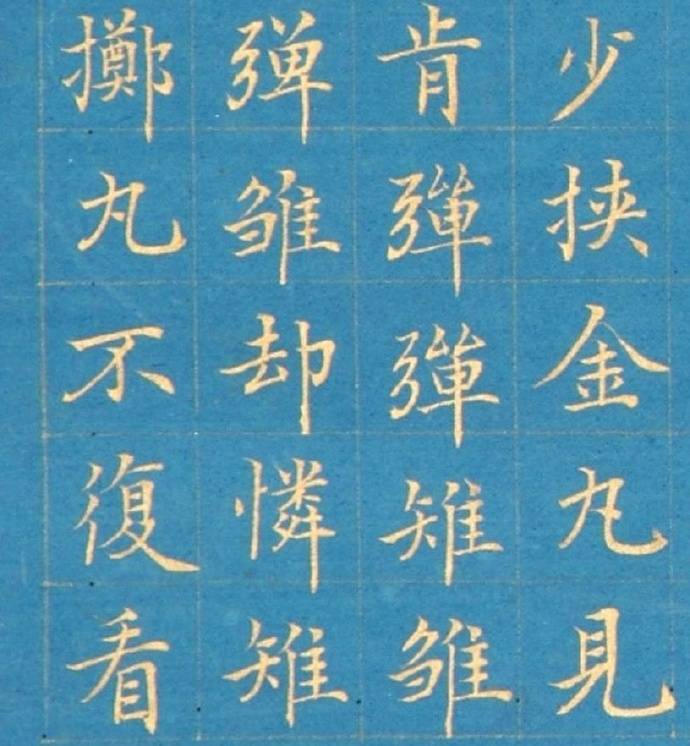 少挾金丸見
肯彈彈雉雏
弹雏却憐雉
擲丸不復看